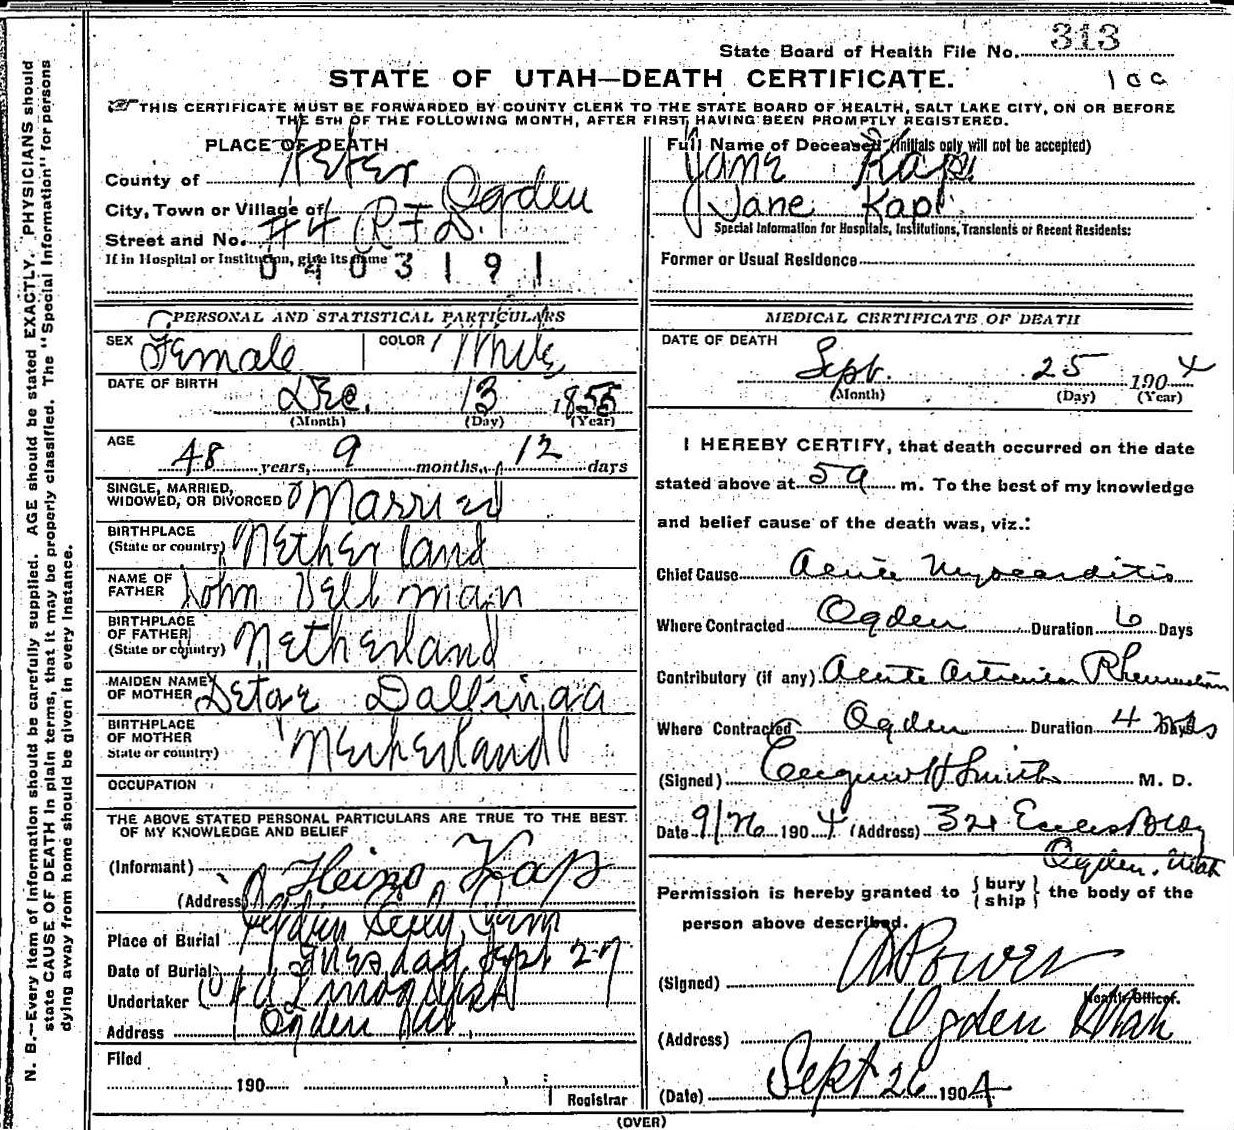 State Board of Health File No. 313
STATE OF UTAH—DEATH CERTIFICATE.
100
THIS CERTIFICATE MUST BE FORWARDED BY COUNTY CLERK TO THE STATE BOARD OF HEALTH, SALT LAKE CITY, ON OR BEFORE
THE 5TH OF THE FOLLOWING MONTH, AFTER FIRST HAVING BEEN PROMPTLY REGISTERED.
PLACE OF DEATH
County of
City, Town or Village of Ogden
Street and No. #4 R F D.
If in Hospital or Institution, give its name
0403191
Full Name of Deceased (Initials only will not be accepted)
Jane Kap
Jane Kap
Special Information for Hospitals, Institutions, Transients or Recent Residents:
Former or Usual Residence
PERSONAL AND STATISTICAL PARTICULARS
SEX Female COLOR White
DATE OF BIRTH
Dec. 13 1855
(Month) (Day) (Year)
AGE
48 years, 9 months, 12 days
SINGLE, MARRIED,
WIDOWED, OR DIVORCED Married
BIRTHPLACE
(State or country) Netherland
NAME OF
FATHER John Veltman
BIRTHPLACE
OF FATHER
(State or country) Netherland
MAIDEN NAME
OF MOTHER Dallinga
BIRTHPLACE
OF MOTHER
State or country) Netherland
OCCUPATION
THE ABOVE STATED PERSONAL PARTICULARS ARE TRUE TO THE BEST
OF MY KNOWLEDGE AND BELIEF
(Informant) Heino Kap
(Address)
Place of Burial Ogden City Cem
Date of Burial Tuesday, Sept 27
Undertaker
Address Ogden Ut
Filed
190
Registrar
MEDICAL CERTIFICATE OF DEATH
DATE OF DEATH
Sept. 25 1904
(Month) (Day) (Year)
I HEREBY CERTIFY, that death occurred on the date
stated above at 5 a m. To the best of my knowledge
and belief cause of the death was, viz.:
Chief Cause Acute Myocarditis
Where Contracted Ogden Duration 6 Days
Contributory (if any) Acute Articular Rheumatism
Where Contracted Ogden Duration 4 Days
(Signed) H Smith M. D.
Date 9/26 1904 (Address) 321 Eccles Bldg
Ogden, Utah
Permission is hereby granted to { bury ship } the body of the
person above described.
(Signed) Power
Health Officer.
(Address) Ogden Utah
(Date) Sept 26 1904
(OVER)
N. B.—Every item of information should be carefully supplied. AGE should be stated EXACTLY. PHYSICIANS should
state CAUSE OF DEATH in plain terms, that it may be properly classified. The "Special Information" for persons
dying away from home should be given in every instance.